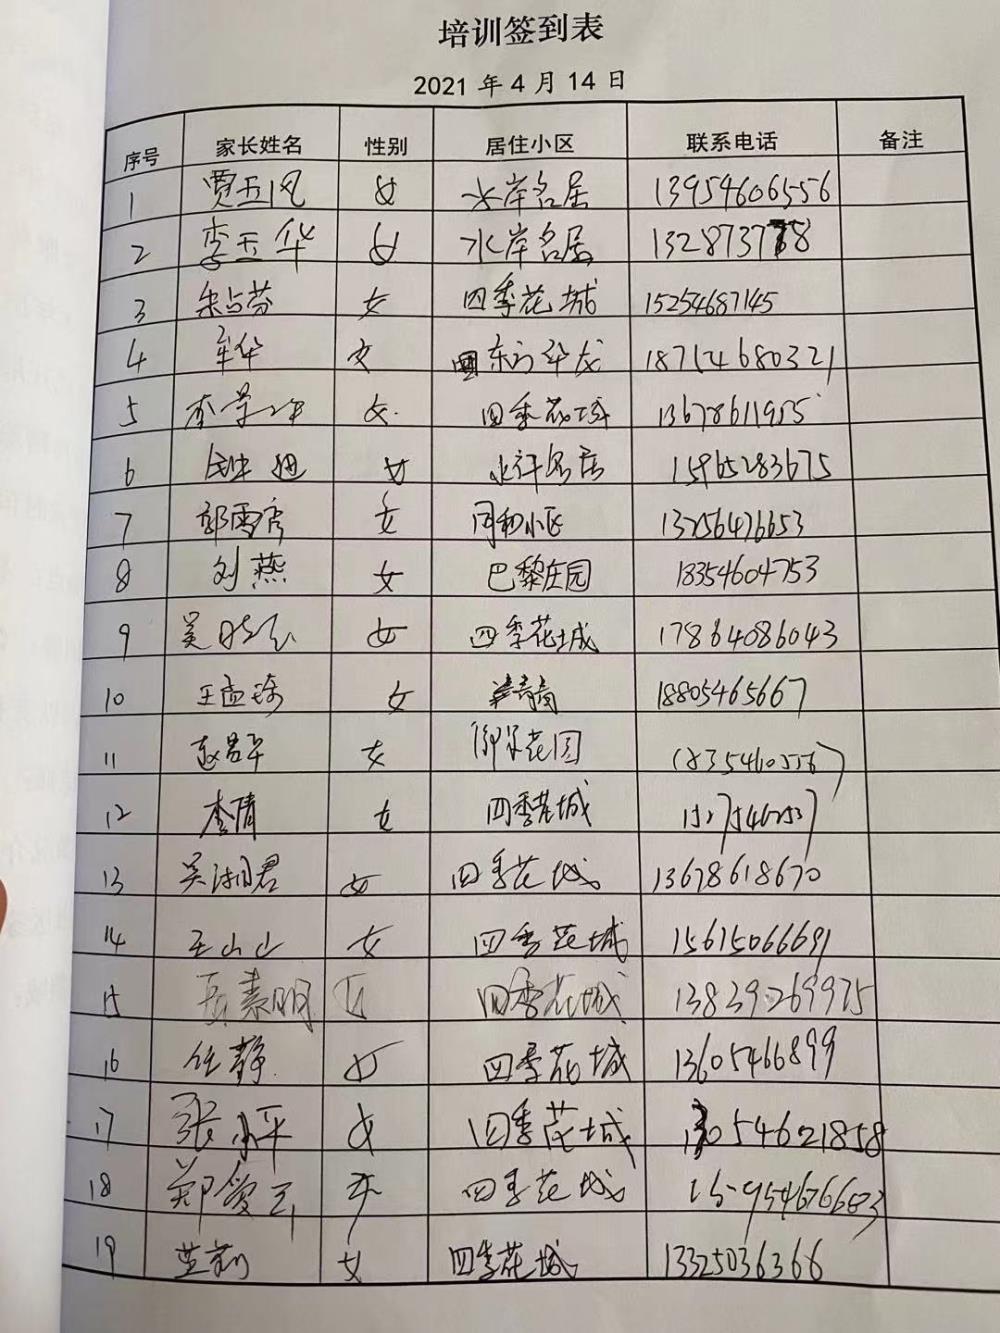 培训签到表
2021年4月14日
序号 家长姓名 性别 居住小区 联系电话 备注
1 贾玉凤 女 水岸名居 13954606556
2 李玉华 女 水岸名居
3 朱占芬 女 四季花城 15254687145
4 牟华 女 东方华龙 18715468032
5 女 四季花城 13678611955
6 女 水岸名居 15965283675
7 郭雪 女 同和小区 13256476653
8 刘燕 女 巴黎庄园 18354604753
9 吴 女 四季花城 17864086043
10 王孟琦 女 18805465667
11 赵 女 花园
12 李倩 女 四季花城
13 吴湘君 女 四季花城 13678618670
14 王山山 女 四季花城 15615066691
15 素明 四季花城 13839269975
16 任静 女 四季花城 13605466899
17 张小平 女 四季花城
18 郑爱玉 四季花城
19 女 四季花城 13325036366